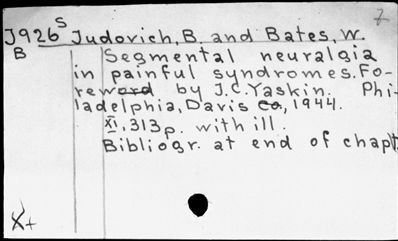 7
S
J926 Judovich, B. and Bates, W.
B Segmental neuralgia
in painful syndromes. Fo-
reword by J.C. Yaskin. Phi-
ladelphia, Davis Co, 1944.
XI, 313p. with ill.
Bibliogr. at end of chapt.
X+